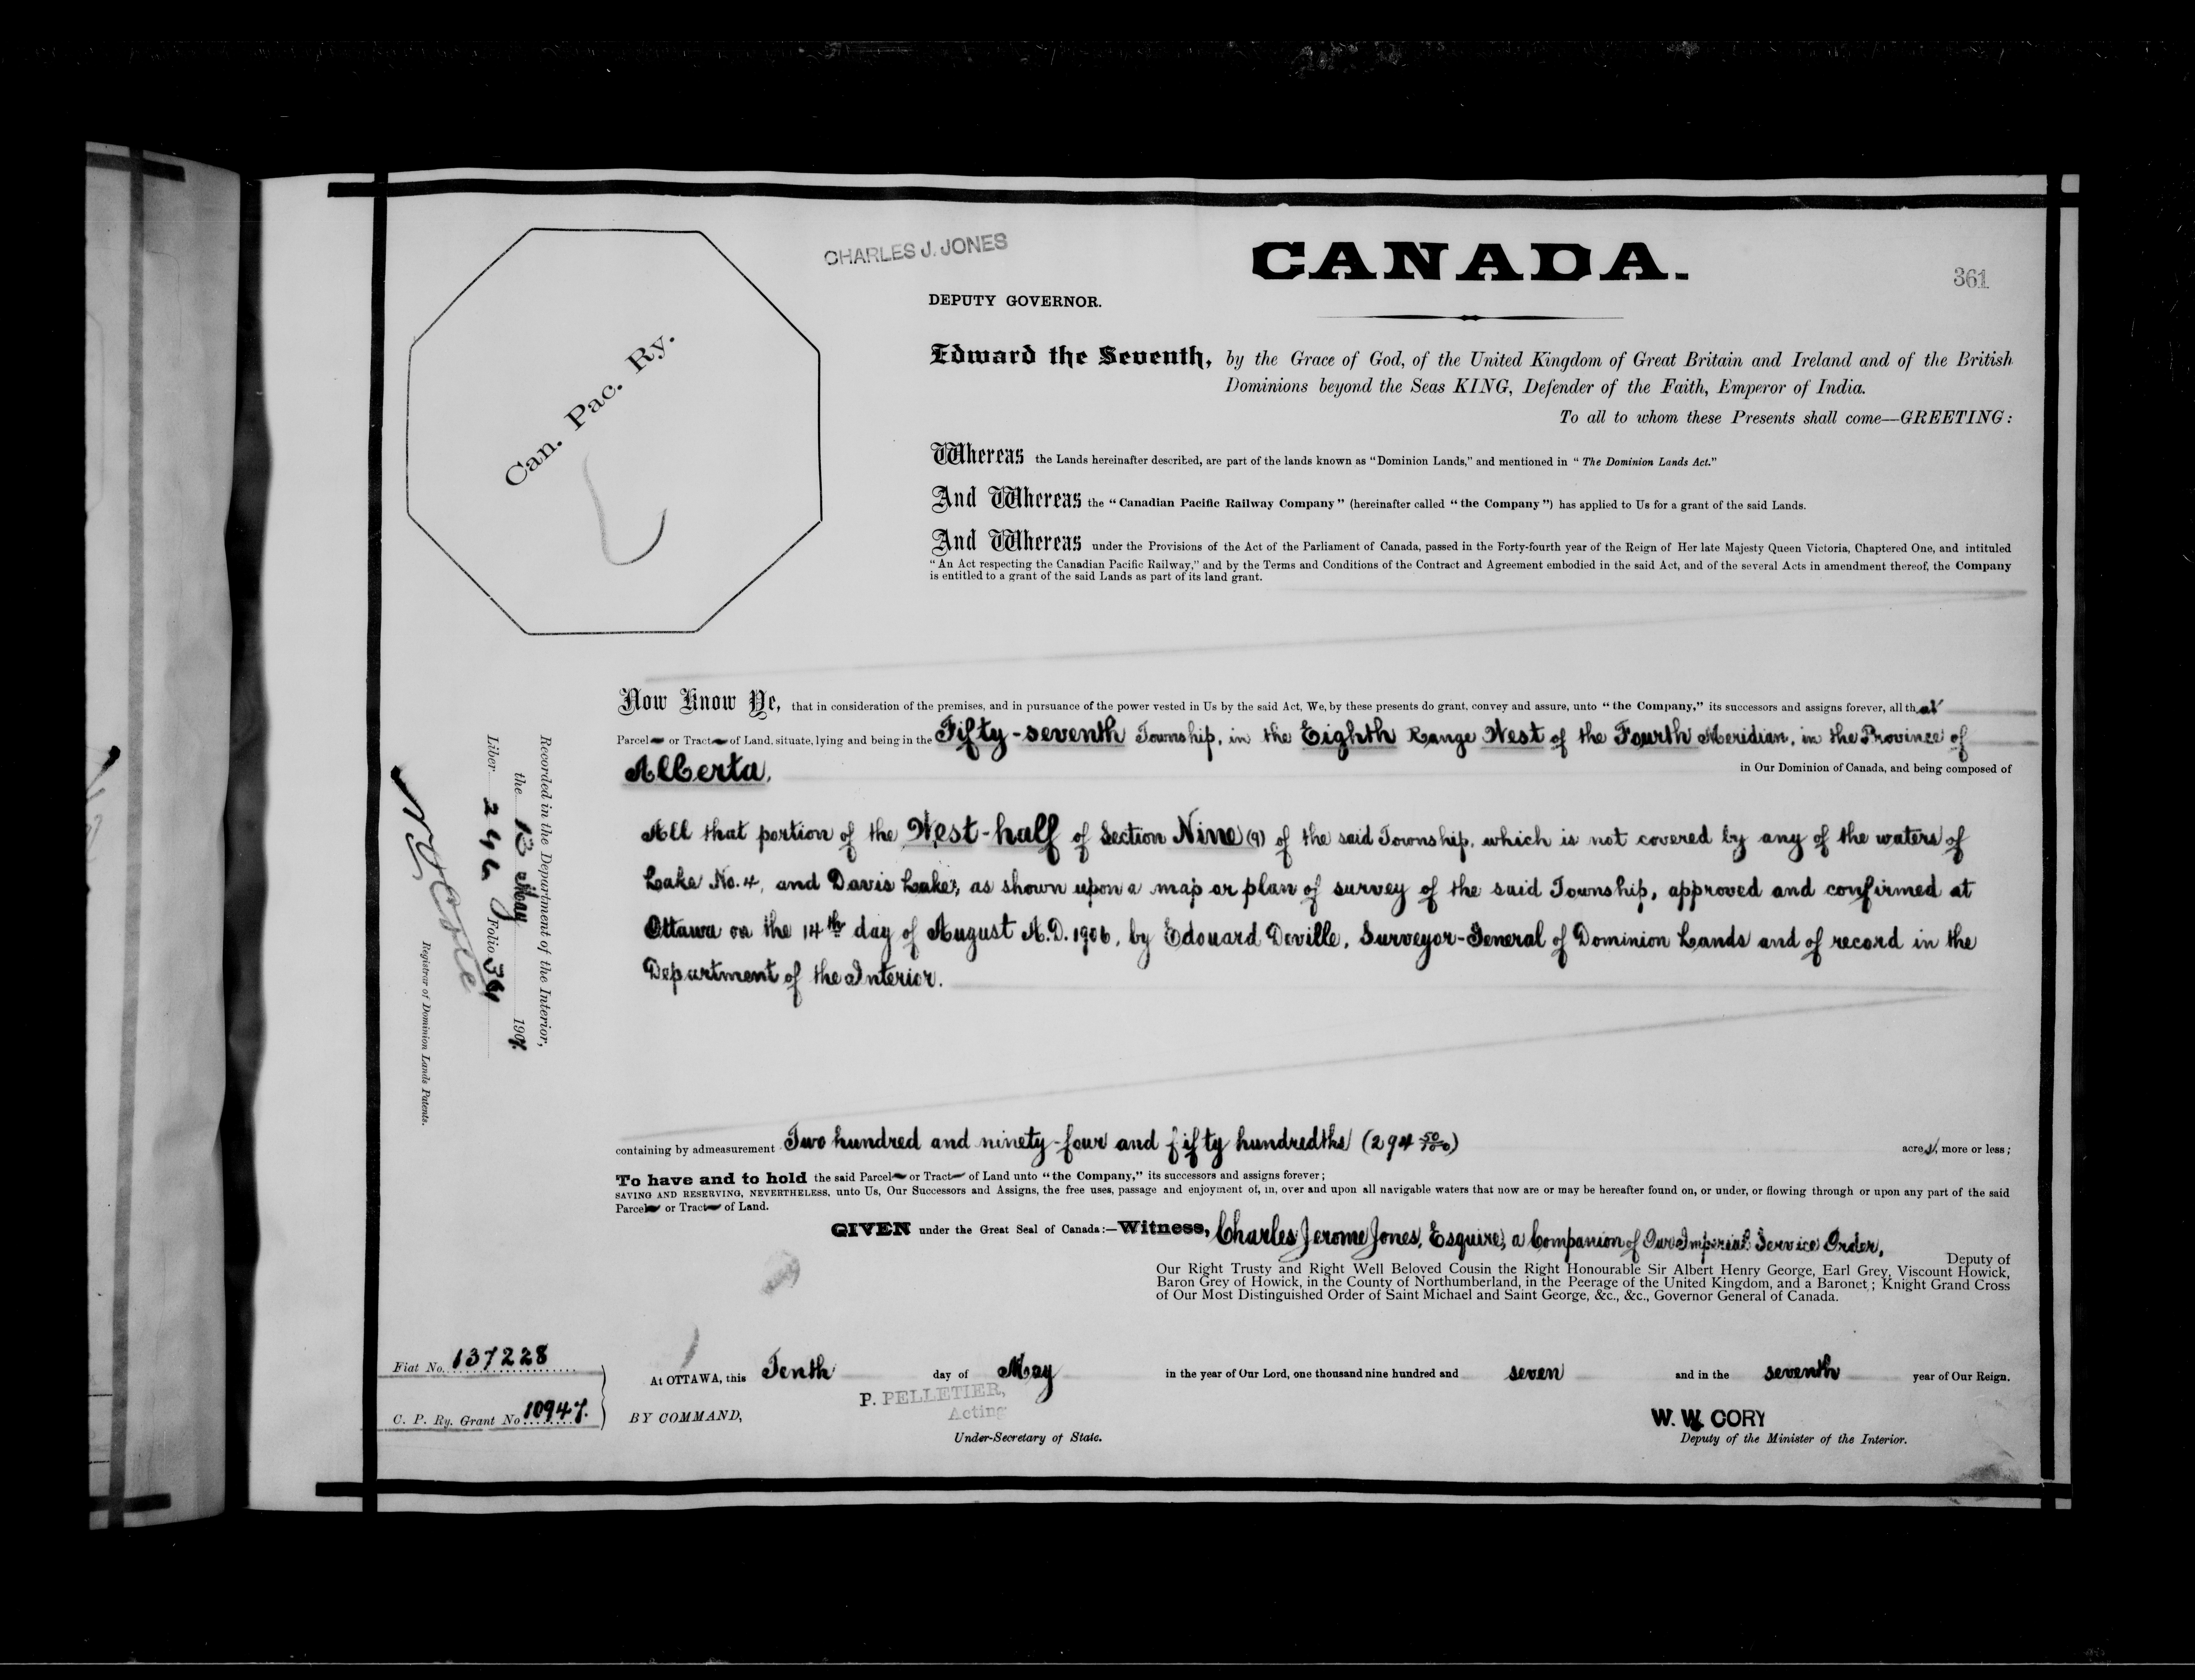 CHARLES J. JONES
CANADA.
361
DEPUTY GOVERNOR.
Can. Pac. Ry.
Edward the Seventh, by the Grace of God, of the United Kingdom of Great Britain and Ireland and of the British
Dominions beyond the Seas KING, Defender of the Faith, Emperor of India.
To all to whom these Presents shall come—GREETING:
Whereas the Lands hereinafter described, are part of the lands known as "Dominion Lands," and mentioned in "The Dominion Lands Act."
And Whereas the "Canadian Pacific Railway Company" (hereinafter called "the Company") has applied to Us for a grant of the said Lands.
And Whereas under the Provisions of the Act of the Parliament of Canada, passed in the Forty-fourth year of the Reign of Her late Majesty Queen Victoria, Chaptered One, and intituled
"An Act respecting the Canadian Pacific Railway," and by the Terms and Conditions of the Contract and Agreement embodied in the said Act, and of the several Acts in amendment thereof, the Company
is entitled to a grant of the said Lands as part of its land grant.
Now Know Ye, that in consideration of the premises, and in pursuance of the power vested in Us by the said Act, We, by these presents do grant, convey and assure, unto "the Company," its successors and assigns forever, all that
Parcel or Tract of Land, situate, lying and being in the Fifty-seventh Township, in the Eighth Range West of the Fourth Meridian, in the Province of
Alberta, in Our Dominion of Canada, and being composed of
All that portion of the West-half of Section Nine (9) of the said Township, which is not covered by any of the waters of
Lake No. 4, and Davis Lake, as shown upon a map or plan of survey of the said Township, approved and confirmed at
Ottawa on the 14th day of August A.D. 1906, by Edouard Deville, Surveyor-General of Dominion Lands and of record in the
Department of the Interior.
containing by admeasurement Two hundred and ninety-four and fifty hundredths (294 50/100) acres, more or less;
To have and to hold the said Parcel or Tract of Land unto "the Company," its successors and assigns forever;
SAVING AND RESERVING, NEVERTHELESS, unto Us, Our Successors and Assigns, the free uses, passage and enjoyment of, in, over and upon all navigable waters that now are or may be hereafter found on, or under, or flowing through or upon any part of the said
Parcel or Tract of Land.
GIVEN under the Great Seal of Canada:—Witness, Charles Jerome Jones, Esquire, a Companion of Our Imperial Service Order,
Deputy of
Our Right Trusty and Right Well Beloved Cousin the Right Honourable Sir Albert Henry George, Earl Grey, Viscount Howick,
Baron Grey of Howick, in the County of Northumberland, in the Peerage of the United Kingdom, and a Baronet; Knight Grand Cross
of Our Most Distinguished Order of Saint Michael and Saint George, &c., &c., Governor General of Canada.
At OTTAWA, this Tenth day of May in the year of Our Lord, one thousand nine hundred and seven and in the seventh year of Our Reign.
BY COMMAND,
P. PELLETIER,
Acting
Under-Secretary of State.
W. W. CORY
Deputy of the Minister of the Interior.
Fiat No. 137228
C. P. Ry. Grant No 10947.
Recorded in the Department of the Interior,
the 13 May 1907
Liber 246 Folio
Registrar of Dominion Lands Patents.